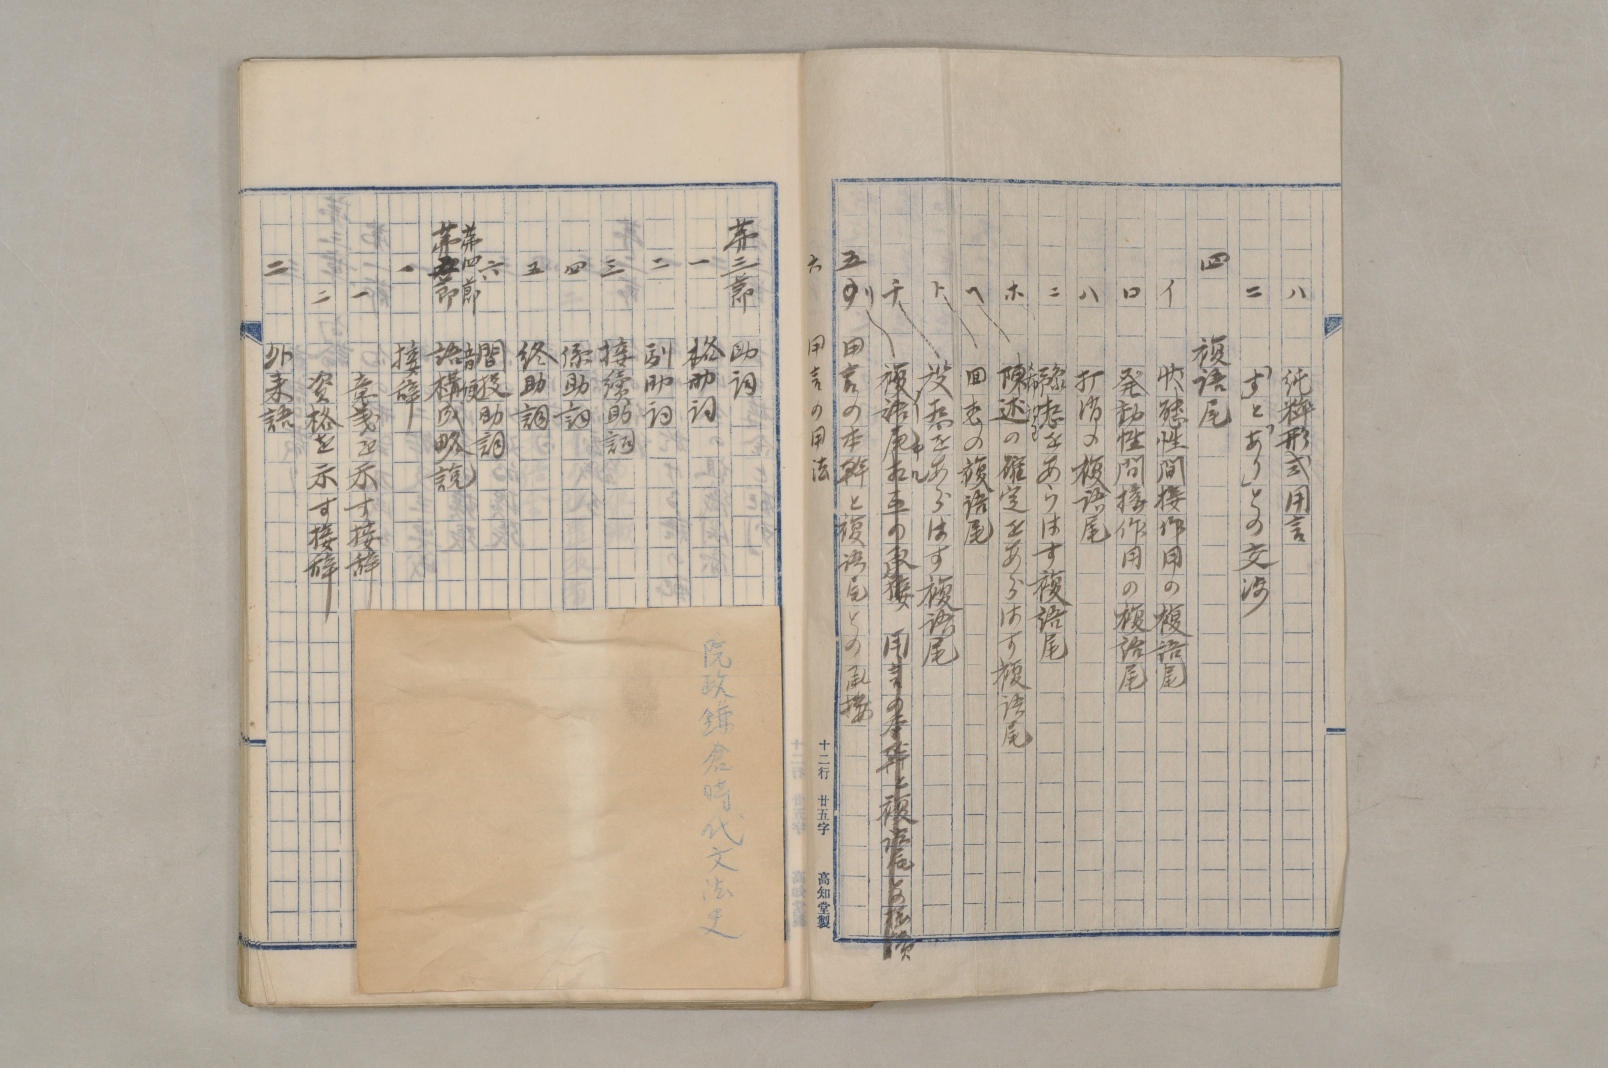 ハ 純粋形式用言
ニ 「す」と「あり」との交渉
四 複語尾
イ 状態性間接作用の複語尾
ロ 発動性間接作用の複語尾
ハ 打消の複語尾
ニ 豫想をあらはす複語尾
ホ 陳述の確定をあらはす複語尾
ヘ 回想の複語尾
ト 設想をあらはす複語尾
チ 複語尾相互の承接
リ
五 用言の本幹と複語尾との承接
六 用言の用法
十二行 廿五字 高知堂製
第三節 助詞
一 格助詞
二 副助詞
三 接続助詞
四 係助詞
五 終助詞
六 間投助詞
第四節 音便
第五節 語構成略説
一 接辞
一 意義を示す接辞
二 資格を示す接辞
二 外来語
院政鎌倉時代文法史